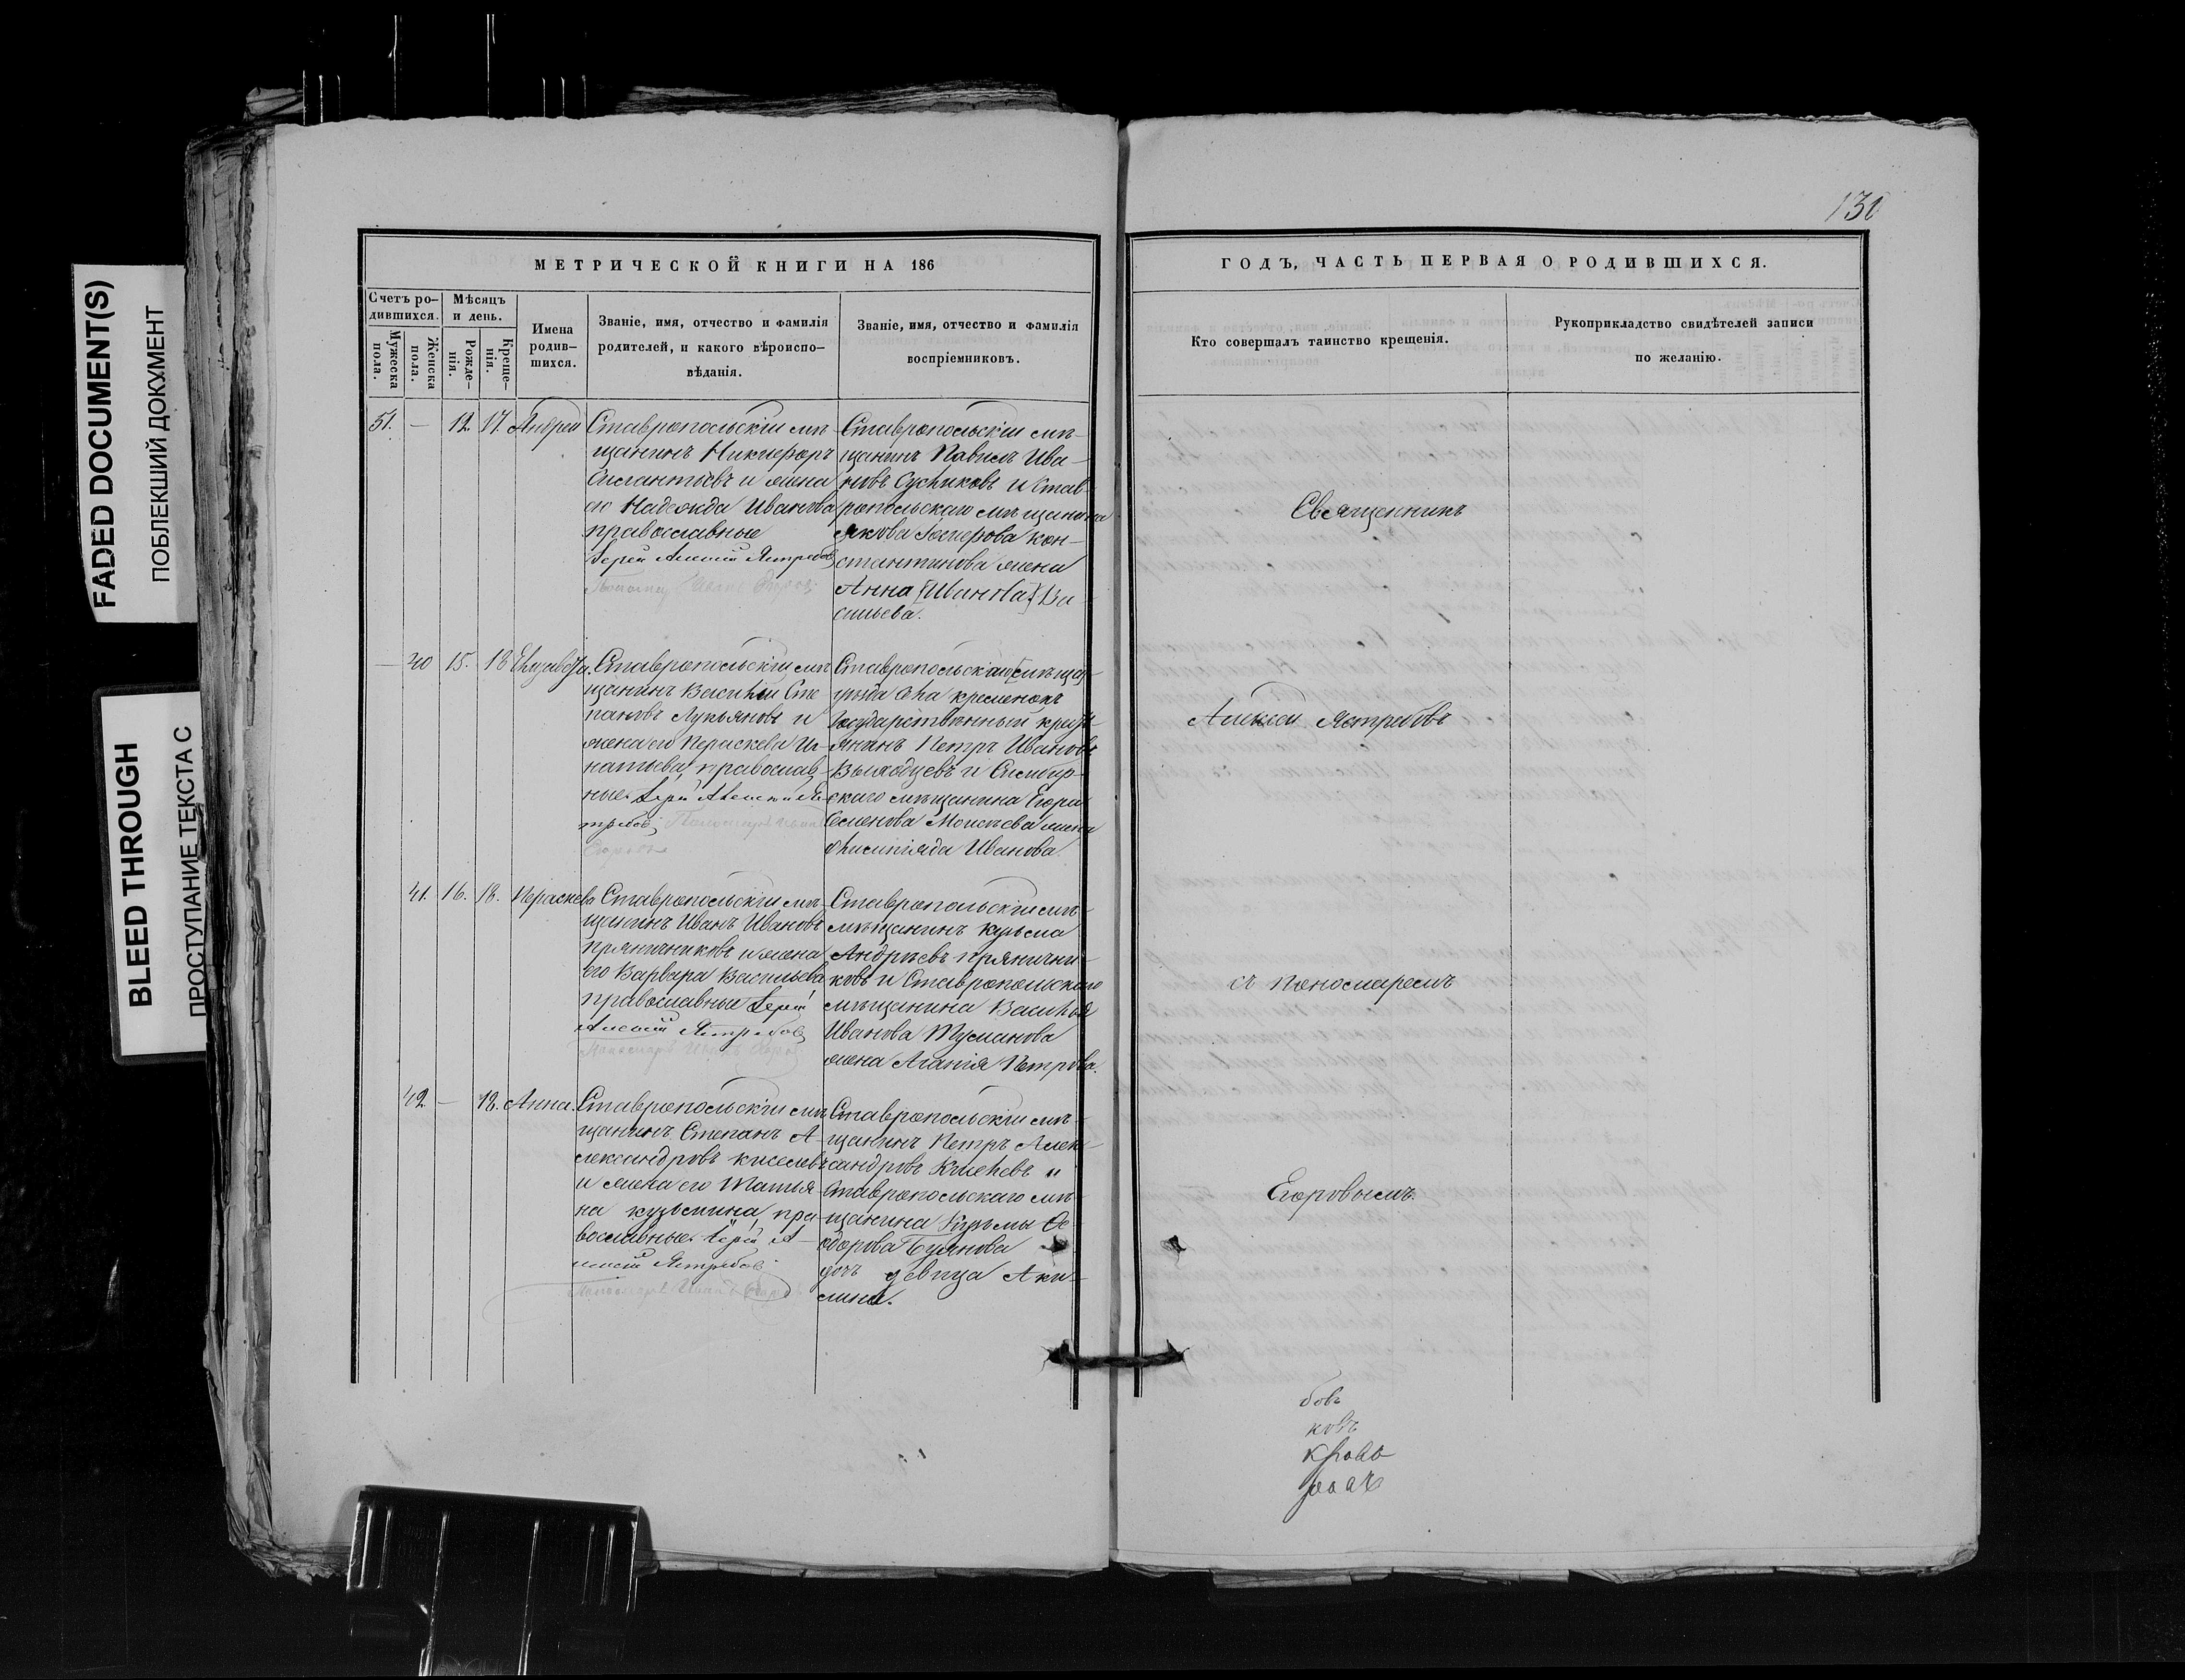 FADED DOCUMENT(S)
ПОБЛЕКШИЙ ДОКУМЕНТ
BLEED THROUGH
ПРОСТУПАНИЕ ТЕКСТА С
МЕТРИЧЕСКОЙ КНИГИ НА 186
Счетъ ро-
дившихся.
Мужеска
пола.
Женска
пола.
Мѣсяцъ
и день.
Рожде-
нія.
Креще-
нія.
Имена
родив-
шихся.
Званіе, имя, отчество и фамилія
родителей, и какого вѣроиспо-
вѣданія.
Званіе, имя, отчество и фамилія
воспріемниковъ.
51. — 12. 17. Андрей
Ставропольскій мѣ-
щанинъ Никифоръ
и жена
его Надежда Иванова
православные
Іерей Алексій Ястребовъ
Ставропольскій мѣ-
щанинъ Павелъ Ива-
новъ и Став-
ропольскаго мѣщанина
Якова Кон-
стантинова жена
Анна [Иванова] Ва-
сильева.
— 40 15. 18 Елизавета.
Ставропольскій мѣ-
щанинъ Василій Сте
пановъ Лукьяновъ и
жена его Параскева Иг-
натьева, православ-
ные. Іерей Алексій Яс
требовъ Пономарь Иванъ
Егоровъ
Государственный кресть-
янинъ Петръ Ивановъ
и Симбир-
скаго мѣщанина Егора
Семенова Моисѣева жена
Олимпіада Иванова.
41. 16. 18. Параскева
Ставропольскій мѣ-
щанинъ Иванъ Ивановъ
Пряничниковъ и жена
его Варвара Васильева
православные Іерей
Алексій Ястребовъ
Пономарь Иванъ
Ставропольскій мѣ-
мѣщанинъ Кузьма
Андреевъ Пряничнн-
ковъ и Ставропольскаго
мѣщанина Василья
Иванова Туманова
жена Агапія Петрова.
42. — 18. Анна.
Ставропольскій мѣ
щанинъ Степанъ А-
лександровъ Киселевъ
и жена его Татья-
на Кузьмина, пра-
вославные. Іерей А-
лексій Ястребовъ
Пономарь Иванъ
Ставропольскій мѣ-
щанинъ Петръ Алек-
сандровъ и
Ставропольскаго мѣ-
щанина Кузьмы Ѳе-
одорова Буянова
дочь девица Аки-
лина.
131
ГОДЪ, ЧАСТЬ ПЕРВАЯ О РОДИВШИХСЯ.
Кто совершалъ таинство крещенія.
Рукоприкладство свидѣтелей записи
по желанію.
Священникъ
Алексей Ястребовъ
съ Пономаремъ
Егоровымъ.
бовъ
ковъ